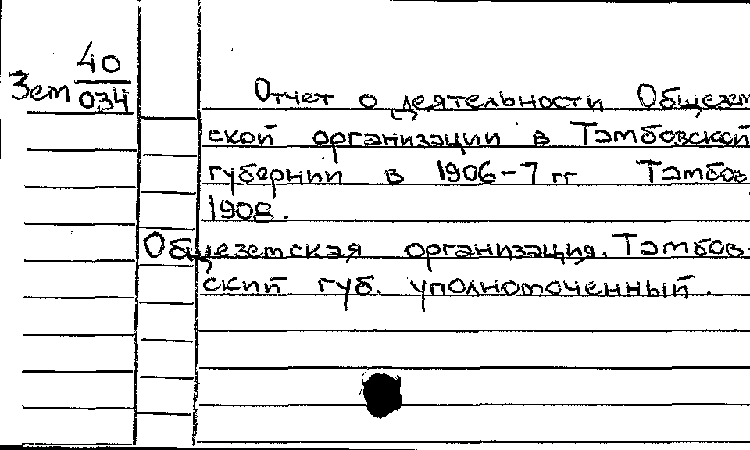 40
Зет 034
Отчет о деятельности Общезем
ской организации в Тамбовской
губернии в 1906-7 гг Тамбов
1908.
Общеземская организация. Тамбов-
ский губ. уполномоченный.